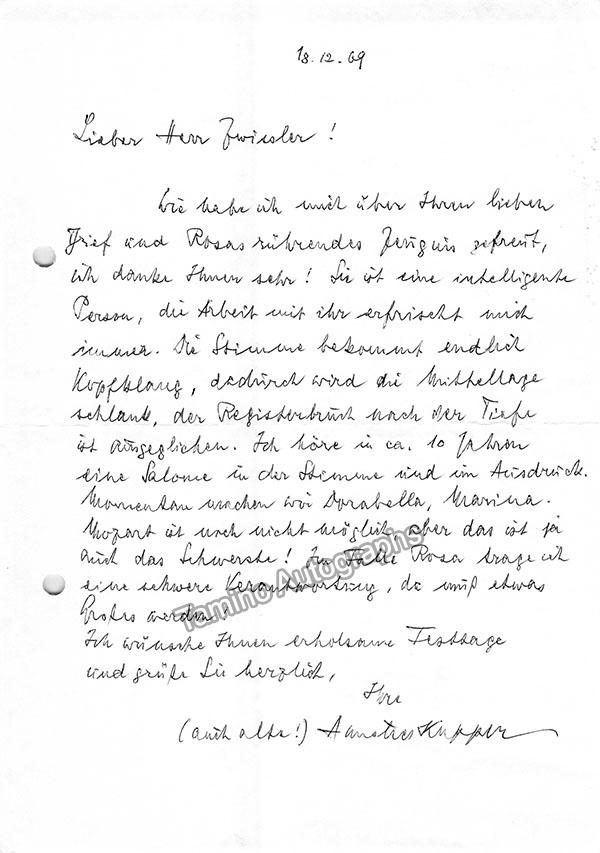 18.12.69
Lieber Herr Zwiesler!
Wie habe ich mich über Ihren lieben
Brief und Rosas rührendes Zeugnis gefreut,
ich danke Ihnen sehr! Sie ist eine intelligente
Person, die Arbeit mit ihr erfrischt mich
immer. Die Stimme bekommt endlich
Kopfklang, dadurch wird die Mittellage
schlank, der Registerbruch nach der Tiefe
ist ausgeglichen. Ich höre in ca. 10 Jahren
eine Salome in der Stimme und im Ausdruck.
Momentan machen wir Dorabella, Marina.
Mozart ist noch nicht möglich aber das ist ja
auch das Schwerste! Im Falle Rosa trage ich
eine schwere Verantwortung, da muß etwas
Großes werden!
Ich wünsche Ihnen erholsame Festtage
und grüße Sie herzlich,
Ihre
(auch alte!) Annelies Kupper
Tamino Autographs